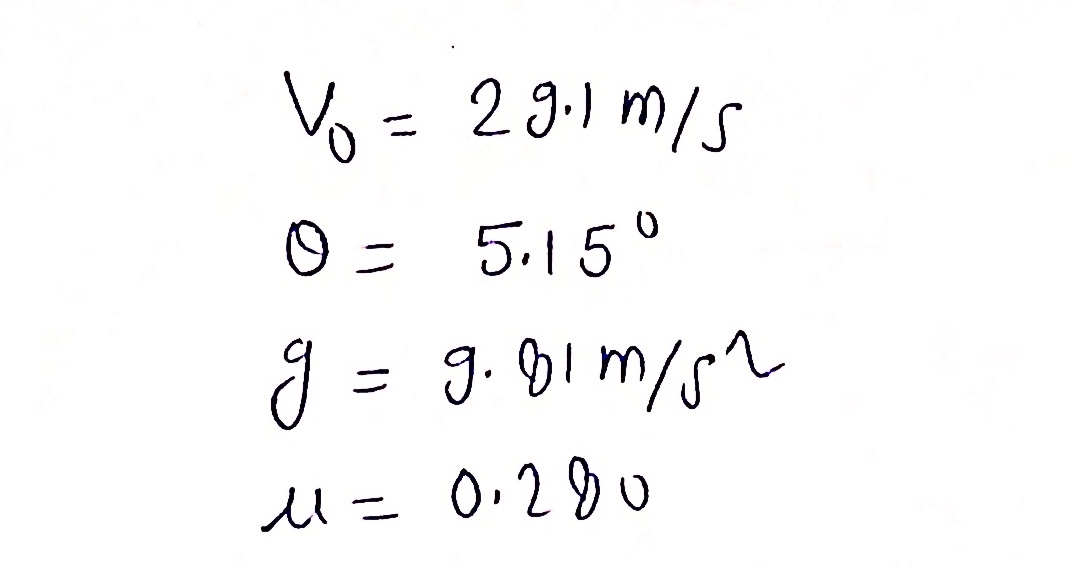 V₀ = 29.1 m/s
θ = 5.15°
g = 9.81 m/s²
μ = 0.280